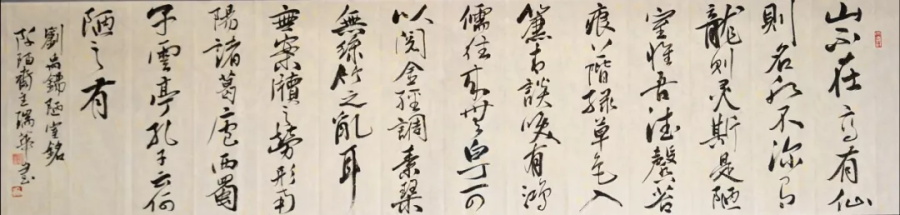 山不在高有仙
則名水不深有
龍則灵斯是陋
室惟吾德馨苔
痕上階緑草色入
簾青談笑有鴻
儒往来無白丁可
以閲金經調素琴
無絲竹之亂耳
無案牘之勞形南
陽諸葛廬西蜀
子雲亭孔子云何
陋之有
劉禹錫陋室銘
陋齋主瑞華